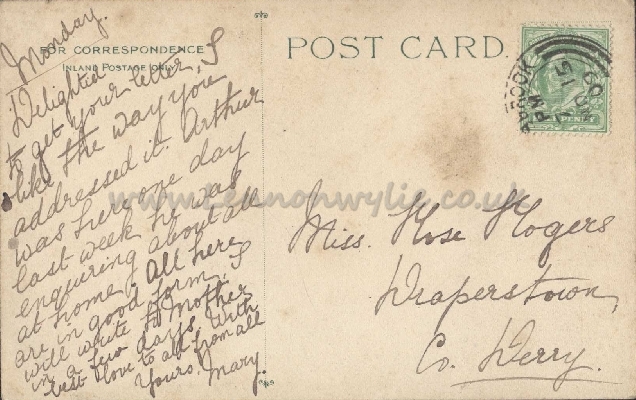 Monday.
FOR CORRESPONDENCE
INLAND POSTAGE ONLY
Delighted
to get your letter, I
like the way you
addressed it. Arthur
was here one day
last week he was
enquiring about all
at home. All here
are in good form, I
will write to Mother
in a few days. With
best love to all from all
Yours, Mary.
POST CARD.
PM
15
09
PENNY
www.Lennonwylie.co.uk
Miss. Rose Rogers
Draperstown,
Co. Derry.